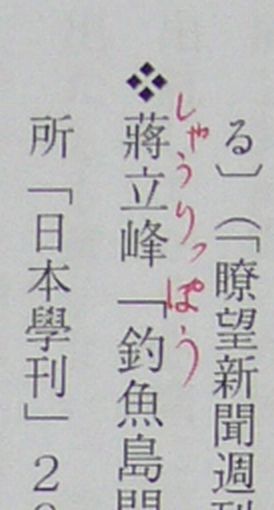 る〕(「瞭望新聞週刊
しゃうりっぽう
❖蔣立峰「釣魚島問
所「日本學刊」20